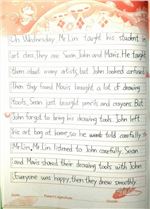 On Wednesday Mr. Lin taught his student in
art class, they are Sean, John and Mavis. He taught
them about many artists, but John looked confused.
Then they found Mavis brought a lot of drawing
tools, Sean just brought pencils and crayons. But
John forgot to bring his drawing tools. John left
his art bag at home, so he told carefully to
Mr. Lin, Mr. Lin listened to John carefully. Sean
and Mavis shared their drawing tools with John
Everyone was happy, then they drew smoothly.